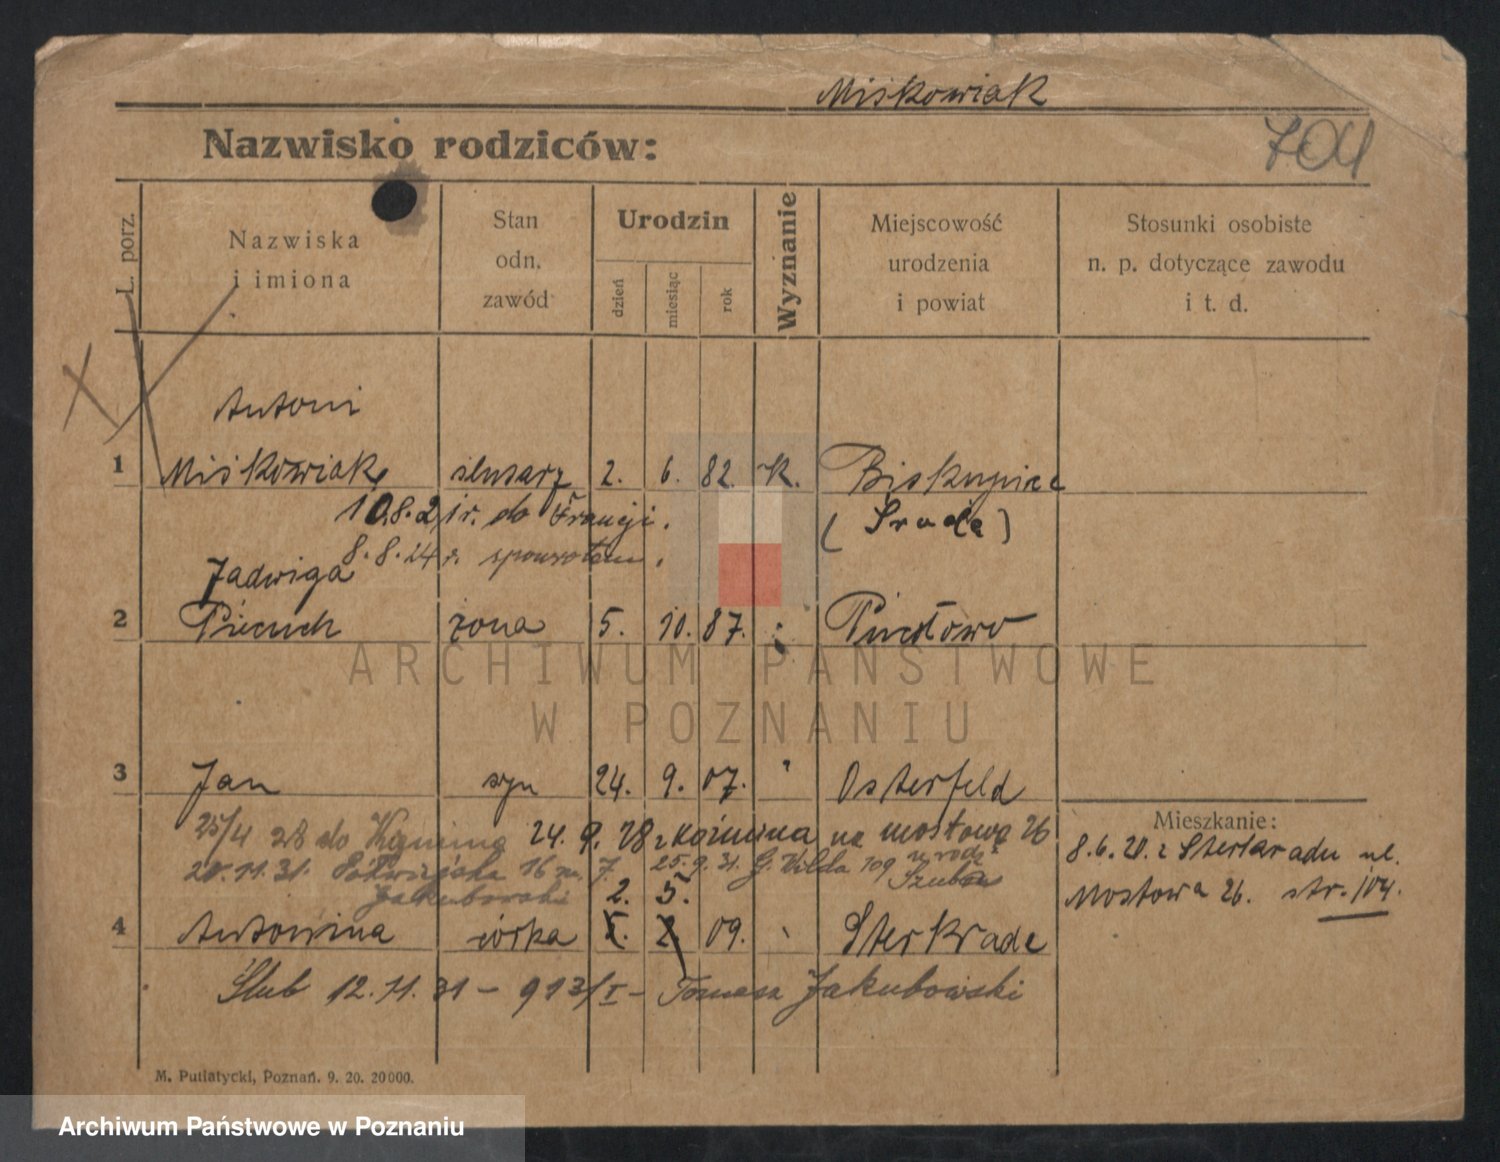 Miśkowiak
Nazwisko rodziców:
704
L. porz.
Nazwiska
i imiona
Stan
odn.
zawód
Urodzin
dzień
miesiąc
rok
Wyznanie
Miejscowość
urodzenia
i powiat
Stosunki osobiste
n. p. dotyczące zawodu
i t. d.
Antoni
1 Miśkowiak ślusarz 2. 6. 82. rk. Biskupice
10.8.21 r. do Francji. (Środa)
8.8.24 r. spowrotem.
Jadwiga
2 Piecuch żona 5. 10. 87. Pacołowo
ARCHIWUM PAŃSTWOWE
W POZNANIU
3 Jan syn 24. 9. 07. " Osterfeld
25/4 28 do 24. 9. 28 z Koźmina na Mostową 26
20.11.31. 16 m. 7. 25.9.31. G. Wilda 109
Jakubowski 2. 5.
4 Antonina córka 09. Sterkrade
Ślub 12.11.31 – 913/I – Tomasz Jakubowski
Mieszkanie:
8.6.20. z Sterkradu ul.
Mostowa 26. str. 104.
M. Putiatycki, Poznań. 9. 20. 20000.
Archiwum Państwowe w Poznaniu